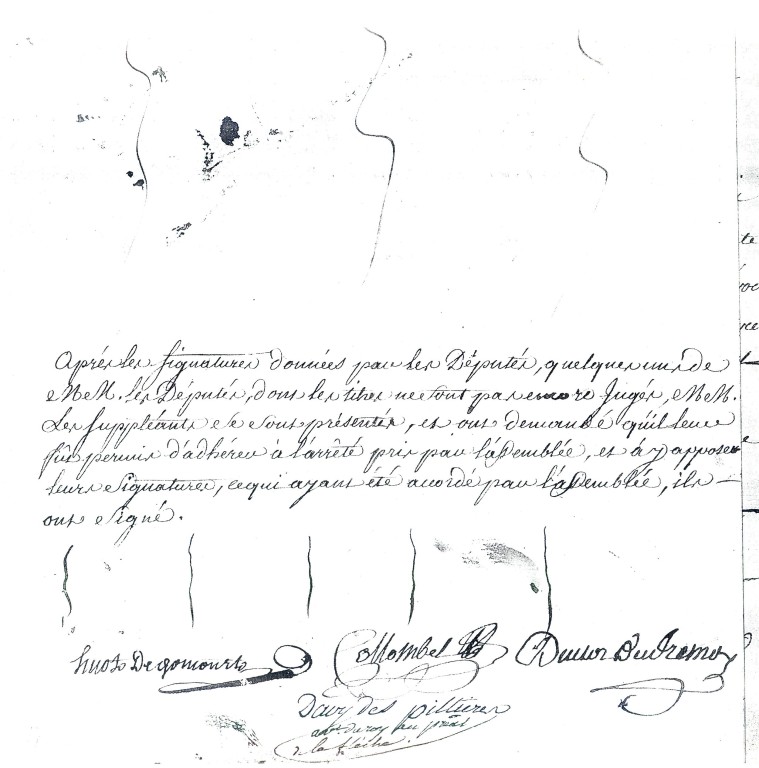 Après les signatures données par les Députés, quelques uns de
MM. les Députés, dont les titres ne sont pas encore Jugés, MM.
Les suppléants se sont présentés, et ont demandé qu'il leur
fût permis d'adhérer à l'arrêté pris par l'assemblée, et à y apposer
leurs signatures, ce qui ayant été accordé par l'assemblée, ils
ont signé.
huot De goncourt Collombel
Davy des piltiers